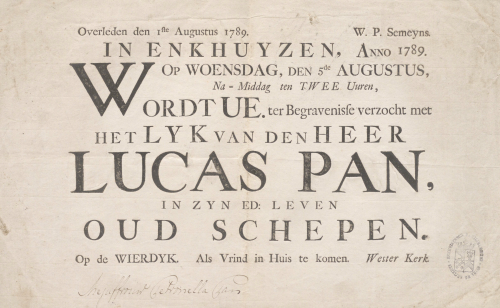 Overleden den 1ste Augustus 1789. W. P. Semeyns.
IN ENKHUYZEN, ANNO 1789.
OP WOENSDAG, DEN 5de AUGUSTUS,
Na-Middag ten TWEE Uuren,
WORDT UE. ter Begravenisse verzocht met
HET LYK VAN DEN HEER
LUCAS PAN,
IN ZYN ED: LEVEN
OUD SCHEPEN.
Op de WIERDYK. Als Vrind in Huis te komen. Wester Kerk.